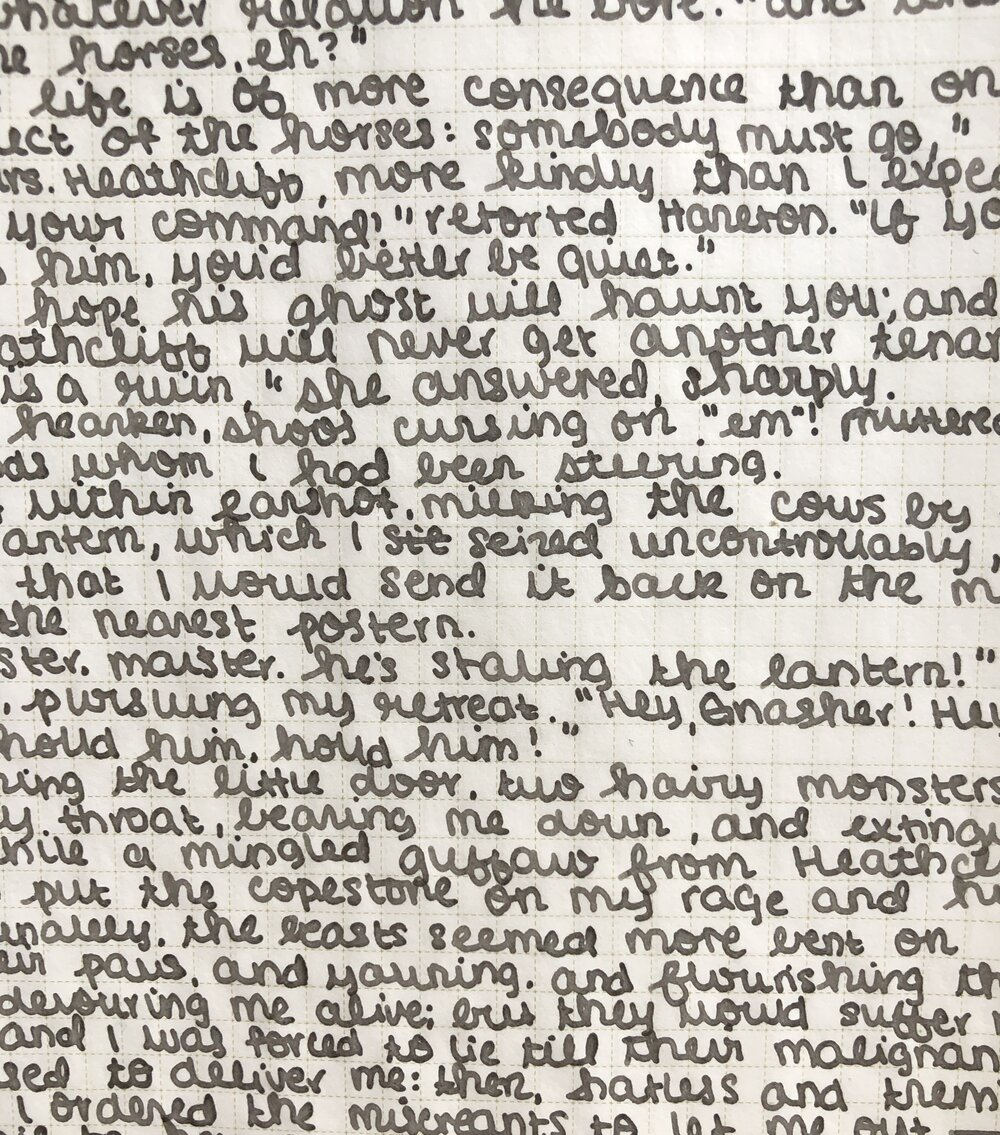 whatever relation he bore. "and
he horses, eh?"
life is of more consequence than on
ect of the horses: somebody must go,"
rs. Heathcliff, more kindly than I expec
your command!" retorted Hareton. "If yo
him, you'd better be quiet."
hope his ghost will haunt you; and
athcliff will never get another tenan
is a ruin," she answered, sharply.
hearken, shoos cursing on "em"! muttered
ds whom I had been steering.
within earshot, milking the cows by
antern, which I seized uncontrollably,
that I would send it back on the m
the nearest postern.
ster, maister, he's staling the lantern!"
, pursuing my retreat. "Hey, Gnasher! Hey
hold him, hold him!"
ning the little door, two hairy monsters
y throat, bearing me down, and exting
hile a mingled guffaw from Heathcl
put the copestone on my rage and hu
unately, the beasts seemed more bent on
eir paws and yawning, and flourishing th
devouring me alive; but they would suffer
and I was forced to lie till their malignan
sed to deliver me: then, hatless and trem
I ordered the miscreants to let me out —